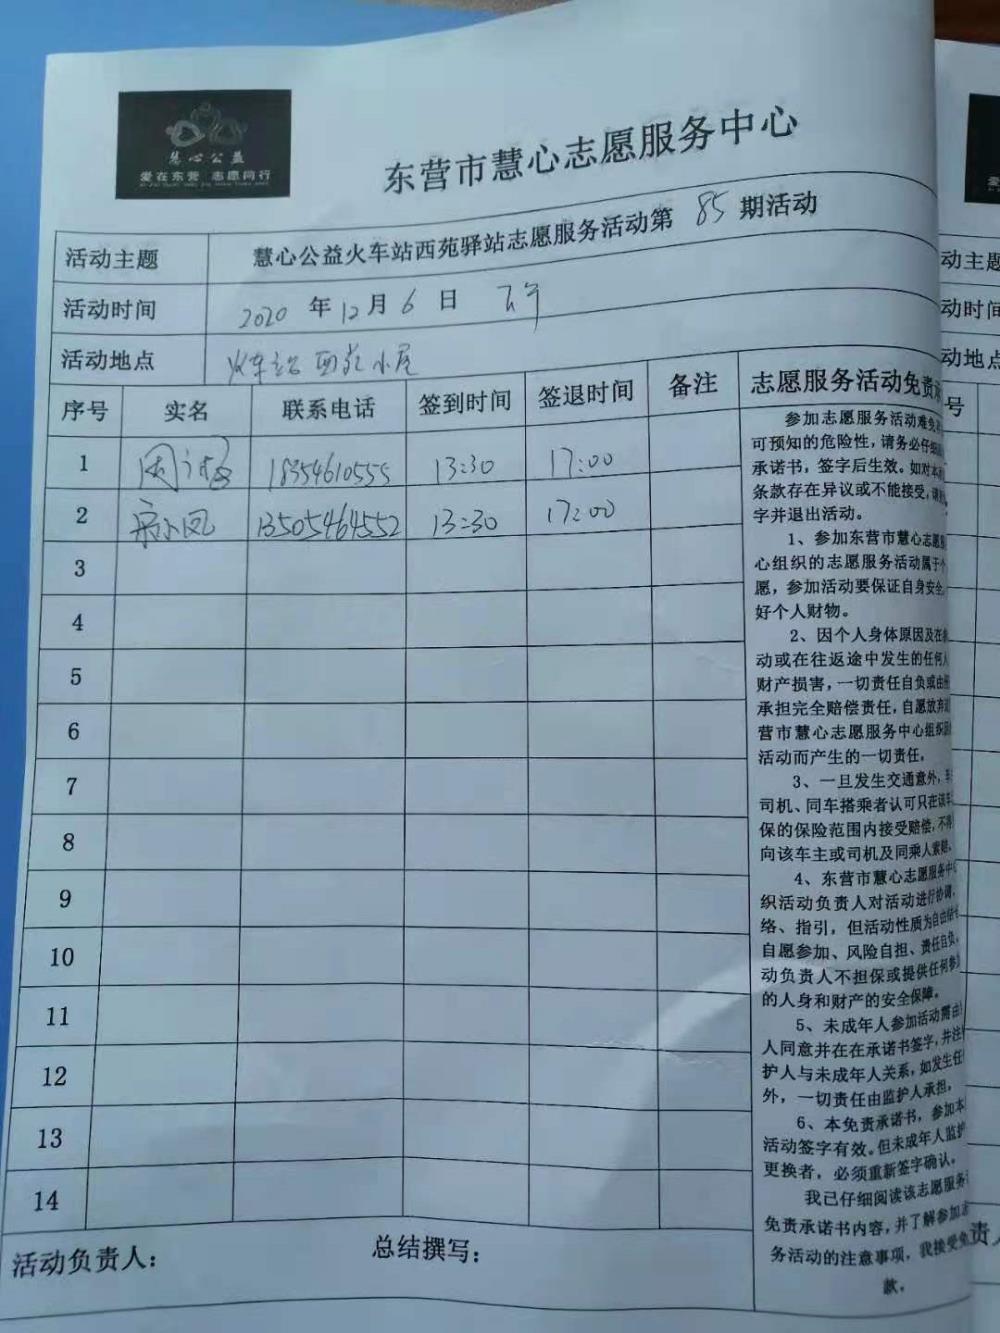 慧心公益
爱在东营 志愿同行
东营市慧心志愿服务中心
活动主题 慧心公益火车站西苑驿站志愿服务活动第 85 期活动
活动时间 2020 年 12 月 6 日 下午
活动地点 火车站西苑小屋
序号 实名 联系电话 签到时间 签退时间 备注 志愿服务活动免责
1 周 18354610555 13:30 17:00
2 小凤 13505464552 13:30 17:00
3
4
5
6
7
8
9
10
11
12
13
14
参加志愿服务活动难免
可预知的危险性，请务必仔细
承诺书，签字后生效。如对本
条款存在异议或不能接受，请
字并退出活动。
1、参加东营市慧心志愿
心组织的志愿服务活动属于个
愿，参加活动要保证自身安全，
好个人财物。
2、因个人身体原因及在
动或在往返途中发生的任何人
财产损害，一切责任自负或由
承担完全赔偿责任，自愿放弃
营市慧心志愿服务中心组织
活动而产生的一切责任。
3、一旦发生交通意外，车
司机、同车搭乘者认可只在该车
保的保险范围内接受赔偿，不得
向该车主或司机及同乘人索赔。
4、东营市慧心志愿服务中
织活动负责人对活动进行协调、
络、指引，但活动性质为自由
自愿参加、风险自担、责任自负。
动负责人不担保或提供任何参
的人身和财产的安全保障。
5、未成年人参加活动需由
人同意并在在承诺书签字，并注
护人与未成年人关系，如发生任
外，一切责任由监护人承担。
6、本免责承诺书，参加本
活动签字有效。但未成年人监护
更换者，必须重新签字确认。
我已仔细阅读该志愿服务
免责承诺书内容，并了解参加
务活动的注意事项，我接受免
款。
活动负责人： 总结撰写：
动主题
动时间
动地点
号
责人